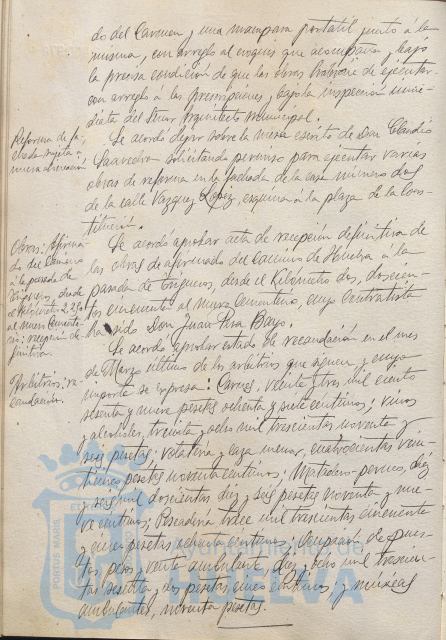 do del Carmen y una mampara portatil junto á la
misma, con arreglo al croquis que acompaña y bajo
la precisa condición de que las obras habrán de ejecutar
con arreglo á las prescripciones, y bajo la inspección inme-
diata del Señor Arquitecto Municipal.
Reforma de fa-
chada sujeta á
nueva alineación
Se acordó dejar sobre la mesa escrito de Don Claudio
Saavedra solicitando permiso para ejecutar varias
obras de reforma en la fachada de la casa número dos
de la calle Vazquez Lopez, esquina á la plaza de la Cons-
titución.
Obras: Afirma-
do del camino
á la parada de
Trigueros, desde
el Kilómetro 2,250
al nuevo Cemente-
rio: recepción de-
finitiva.
Se acordó aprobar acta de recepción definitiva de
las obras de afirmado del camino de Huelva á la
parada de Trigueros, desde el Kilómetro dos, doscien-
tos cincuenta al nuevo Cementerio, cuyo contratista
ha sido Don Juan Bayo.
Arbitrios: re-
caudación.
Se acordó aprobar estado de recaudación en el mes
de Marzo último de los arbitrios que siguen y cuyo
importe se expresa: Carnes, veinte tres mil ciento
sesenta y nueve pesetas ochenta y siete centimos; vinos
y alcoholes, treinta y ocho mil trescientas noventa y
seis pesetas; volatería y caza menor, cuatrocientas vein-
pesetas noventa centimos; Matadero público, diez
y seis mil doscientas diez y seis pesetas noventa y nue-
ve centimos; Pescadería trece mil trescientas cincuenta
y cinco pesetas ochenta centimos; ocupación de pues-
tos, pesos, venta ambulante, diez y ocho mil trescien-
tas sesenta y dos pesetas cinco centimos; y músicas
ambulantes, noventa pesetas.
PORTUS MARIS
Ayuntamiento de
HUELVA